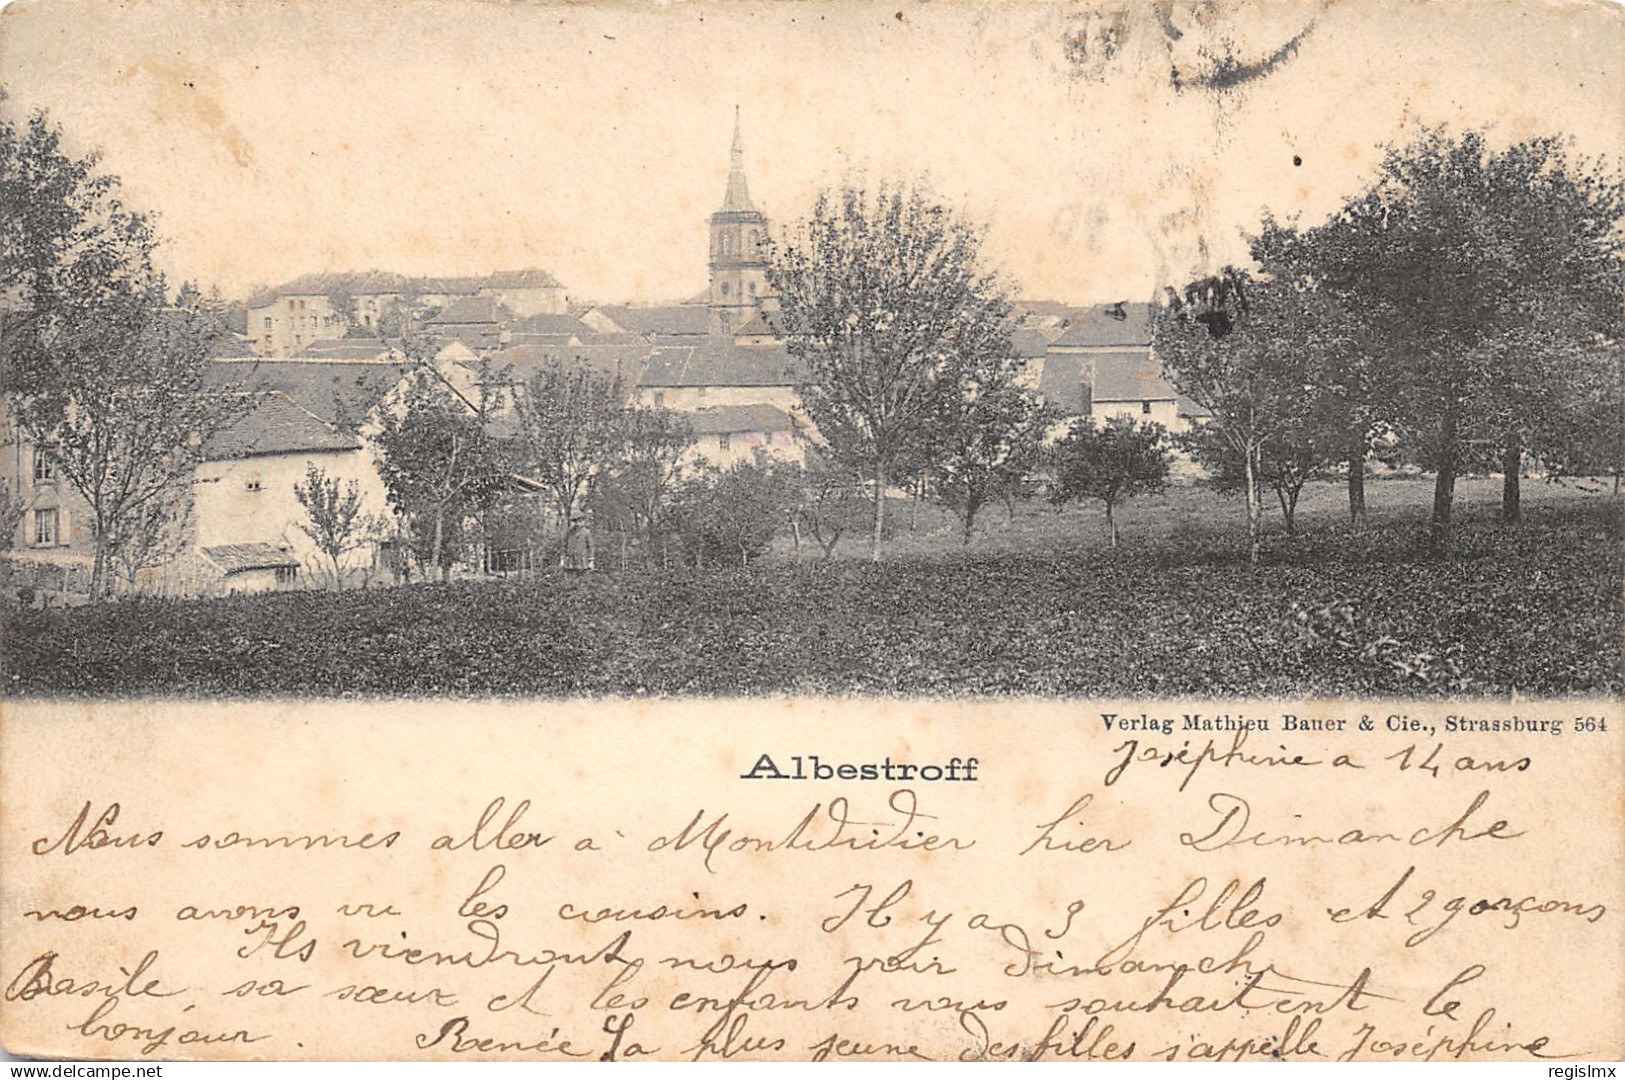 Verlag Mathieu Bauer & Cie., Strassburg 564
Albestroff
Joséphine a 14 ans
Nous sommes aller à Montdidier hier Dimanche
nous avons vu les cousins. Il y a 3 filles et 2 garçons
Ils viendront nous voir Dimanche
Basile, sa sœur et les enfants vous souhaitent le
bonjour. Renée La plus jeune des filles s'appelle Joséphine
www.delcampe.net
regislmx